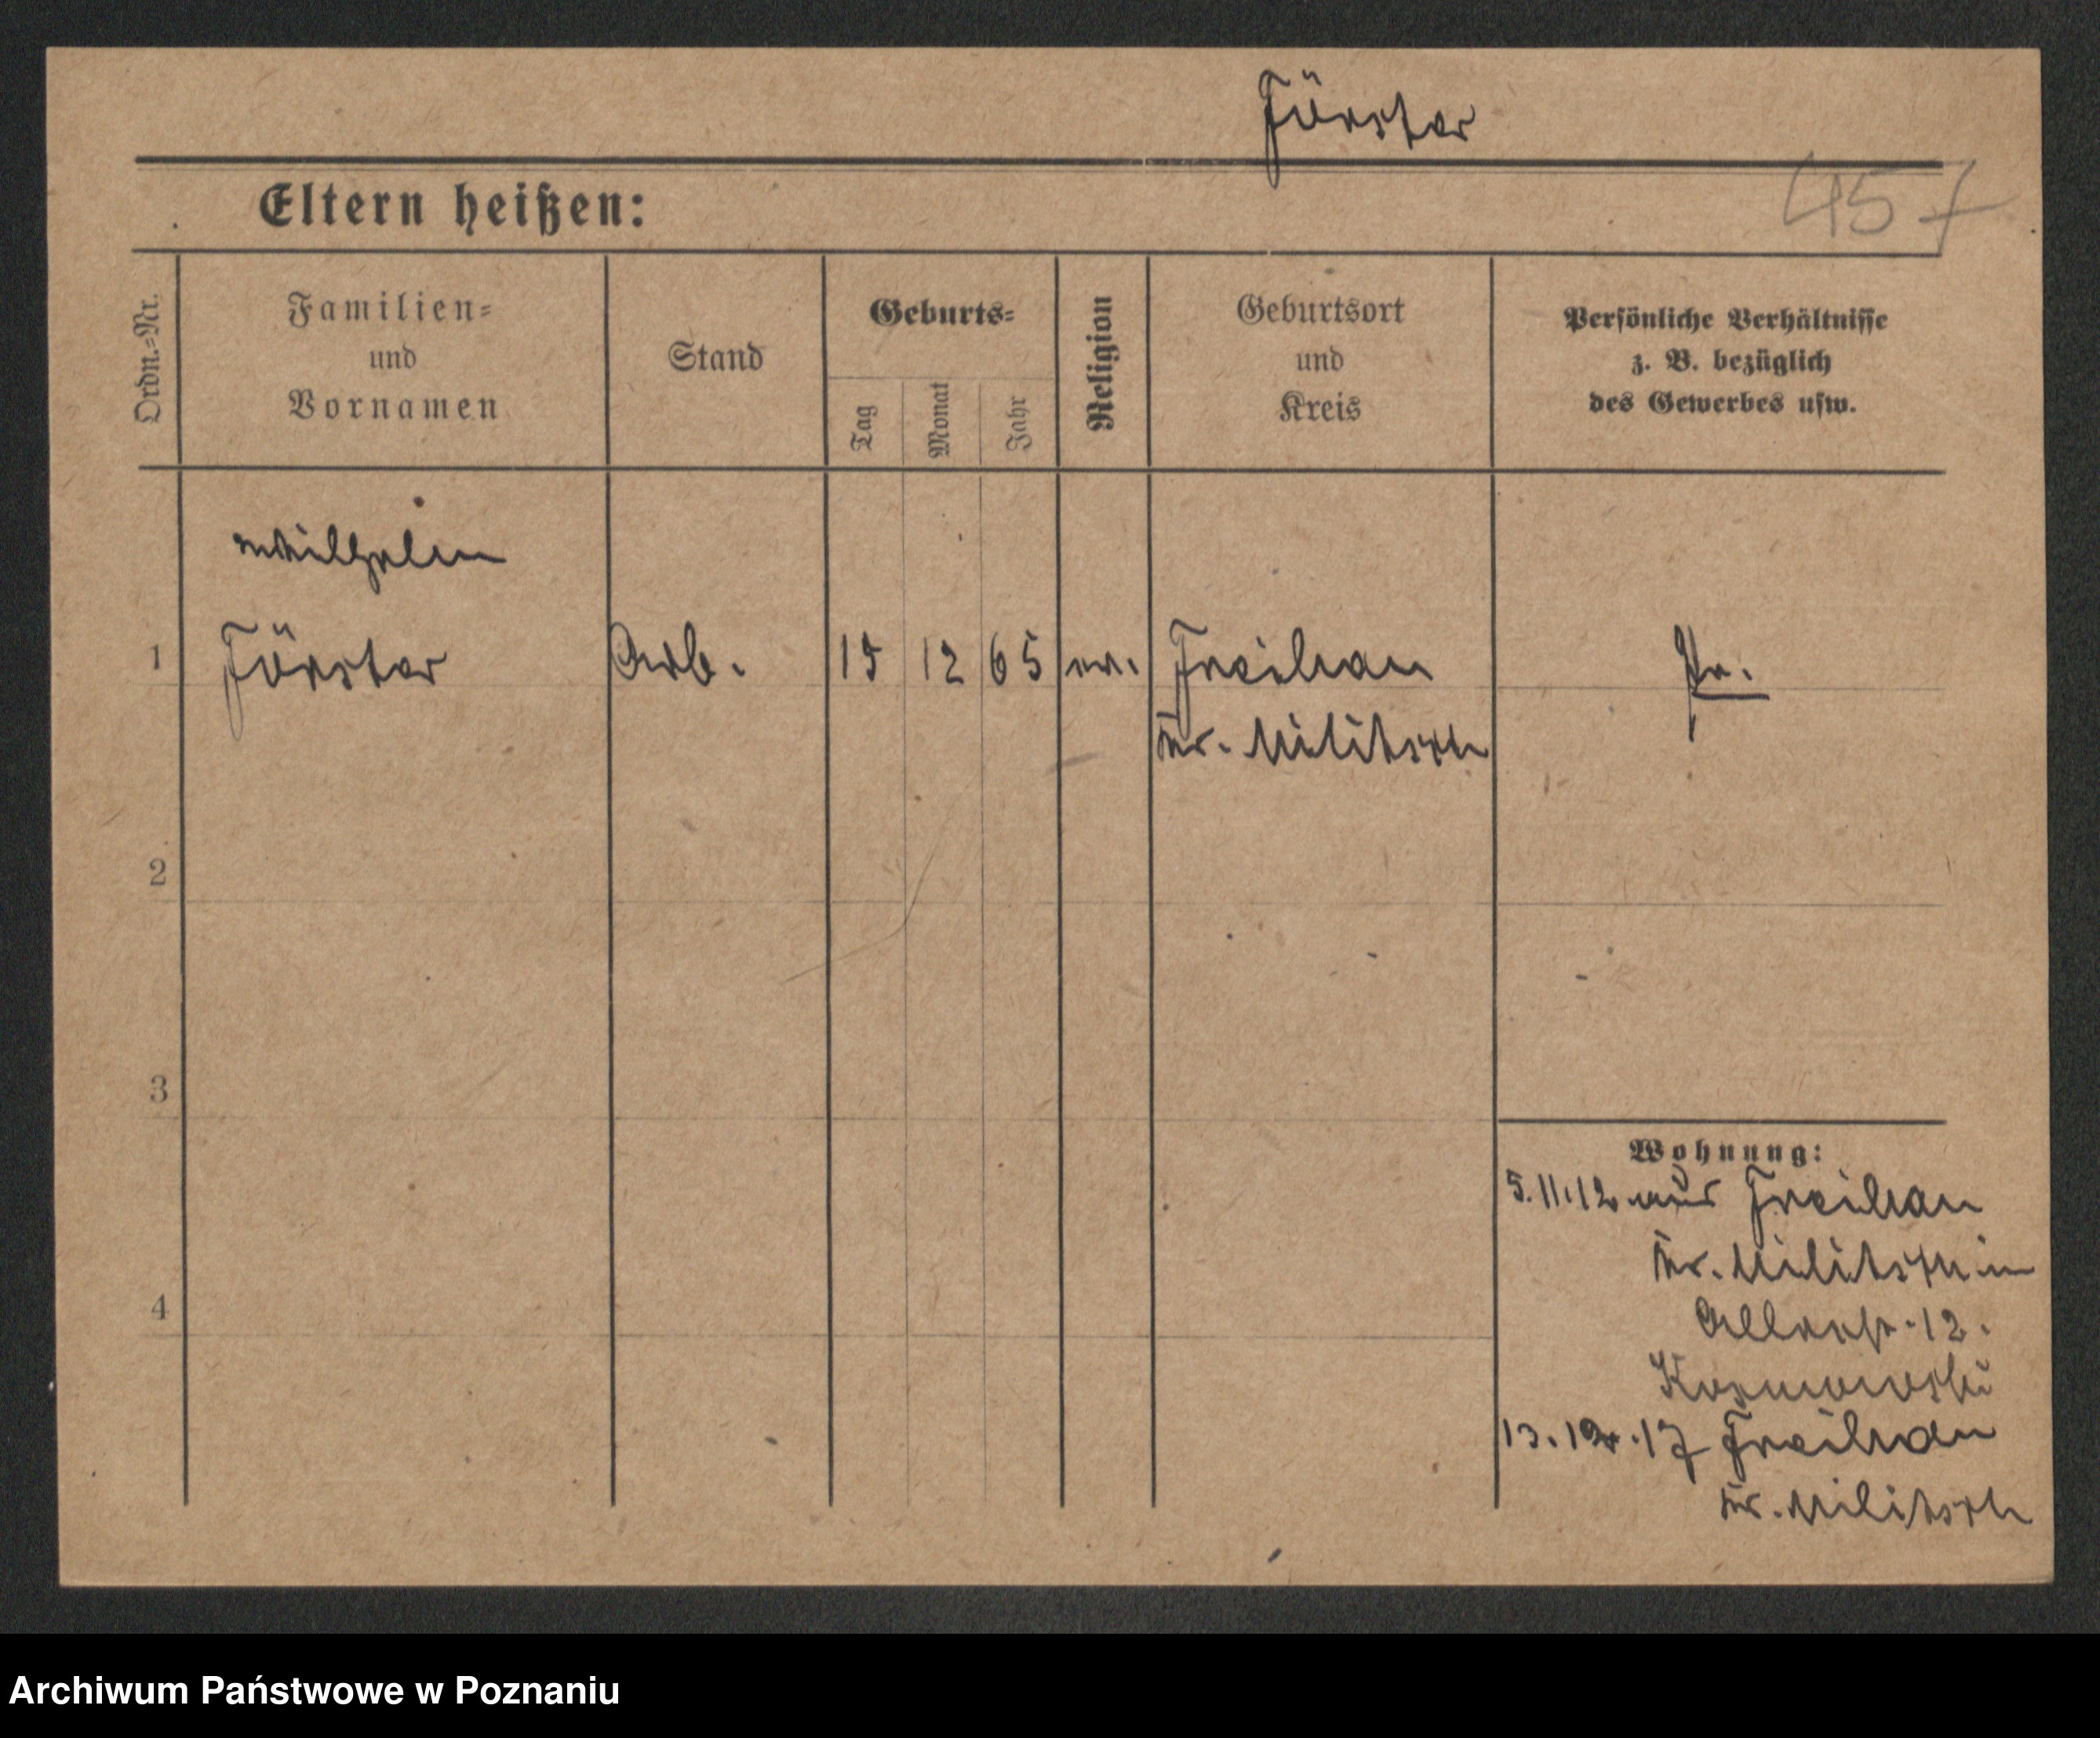 Förster
457
Eltern heißen:
Ordn.=Nr.
Familien= und Vornamen
Stand
Geburts=
Tag
Monat
Jahr
Religion
Geburtsort und Kreis
Persönliche Verhältnisse
z. B. bezüglich
des Gewerbes usw.
Wilhelm
1 Förster Arb. 15 12 65 ev. Freihan Pr.
Kr. Militsch
2
3
4
Wohnung:
5.11.12 aus Freihan
Kr. Militsch in
12.
13.12.17 Freihan
Kr. Militsch
Archiwum Państwowe w Poznaniu